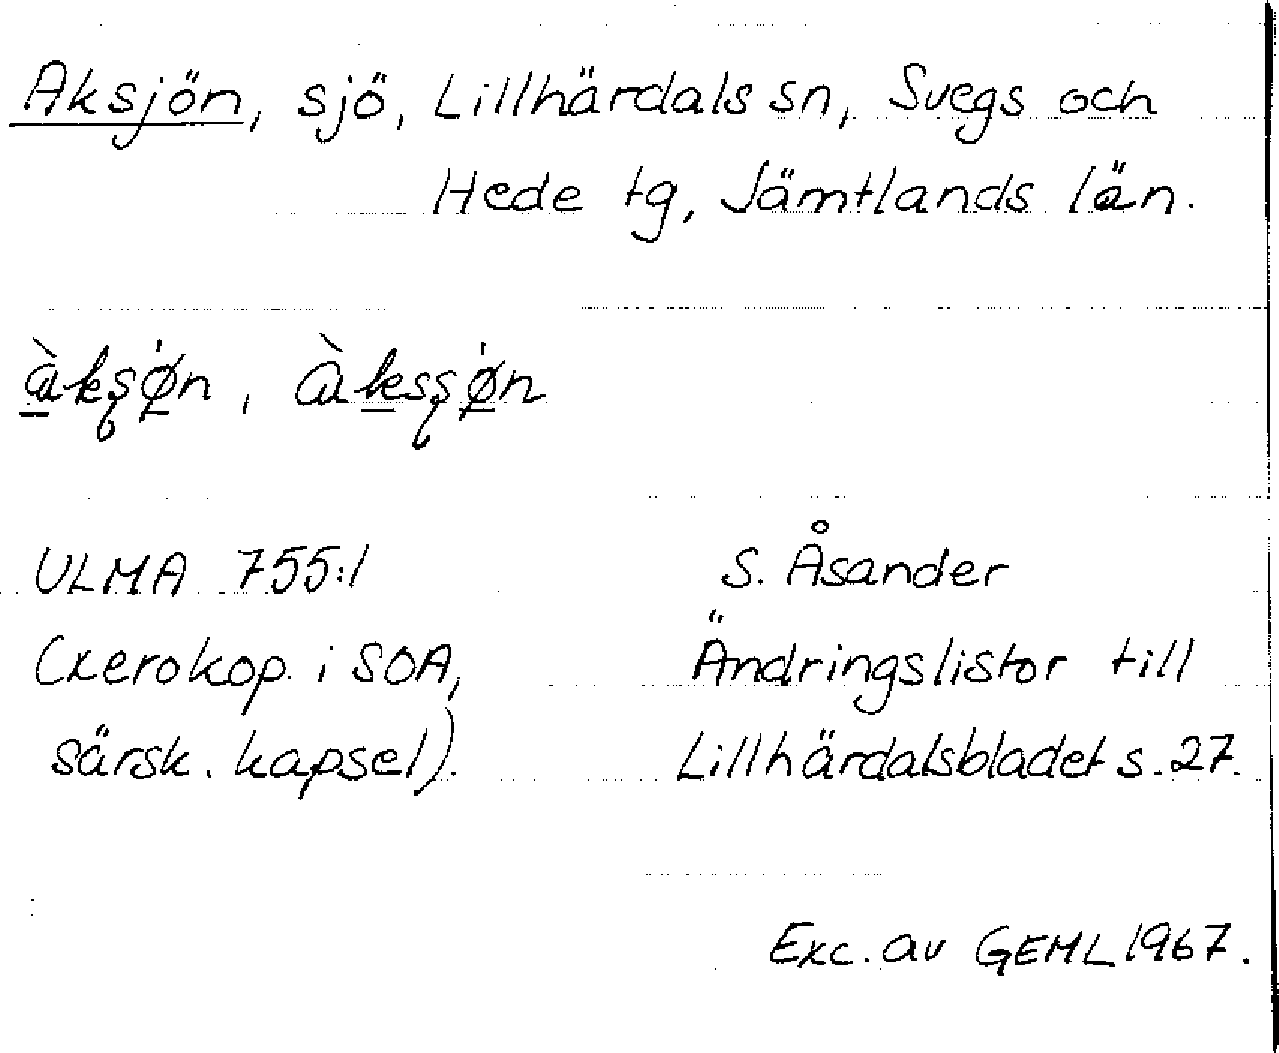 Aksjön, sjö, Lillhärdals sn, Svegs och
Hede tg, Jämtlands län.
àksø̍n, àkssø̍n
ULMA 755:1
(xerokop. i SOA,
särsk. kapsel).
S. Åsander
Ändringslistor till
Lillhärdalsbladet s. 27.
Exc. av GEML 1967.